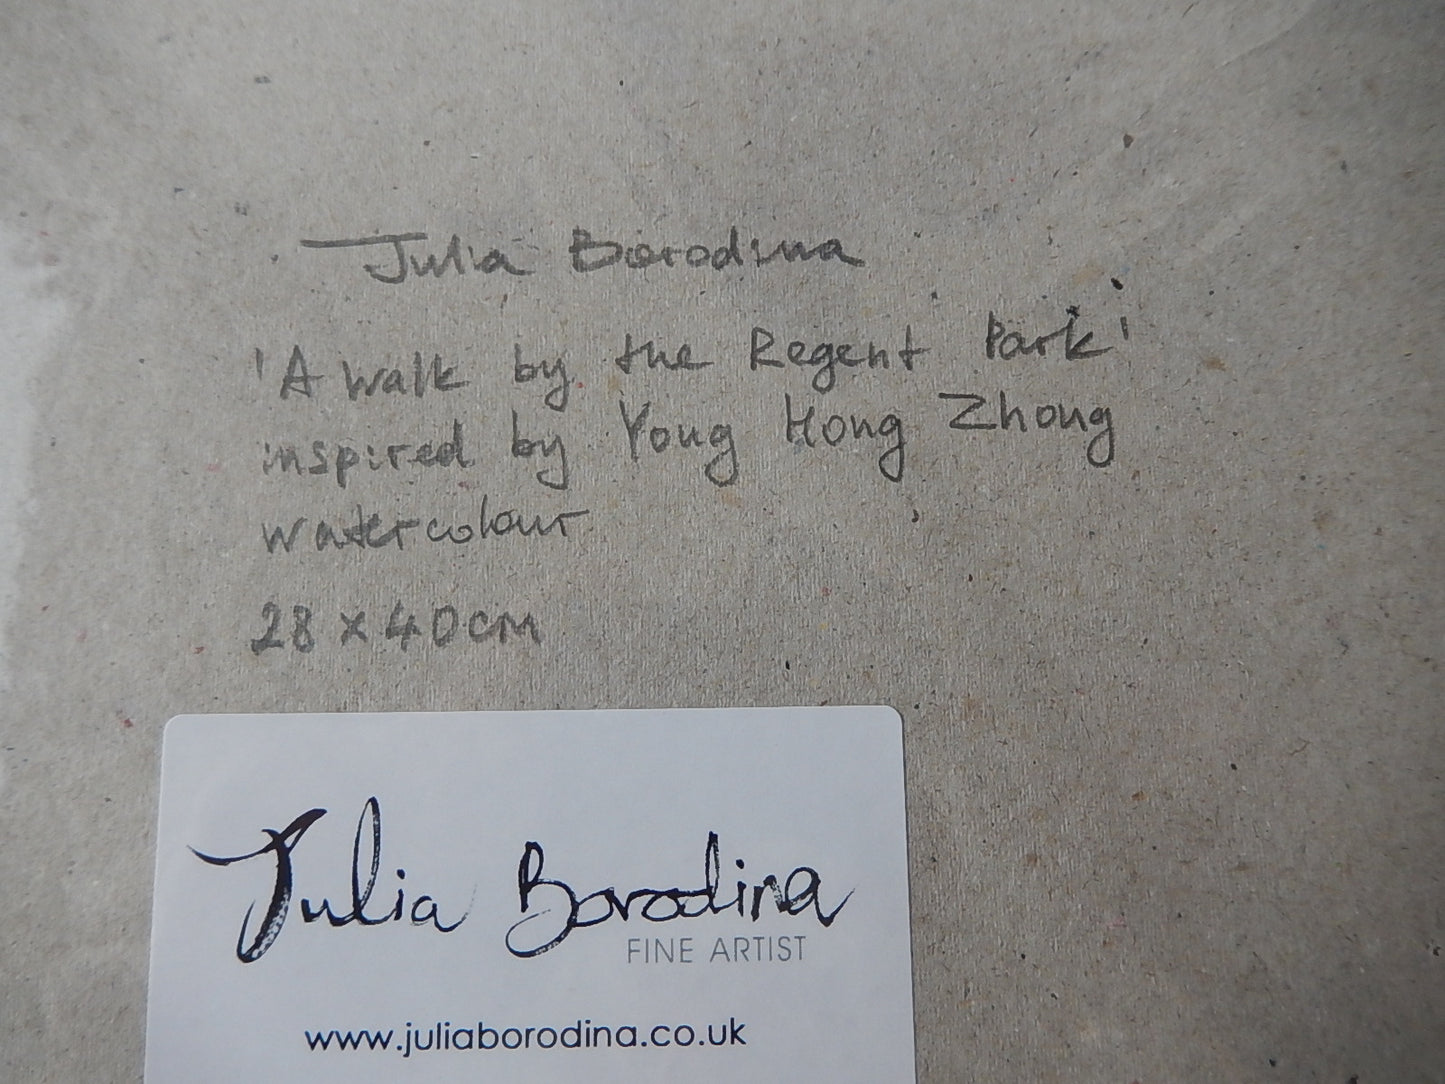 Julia Borodina
'A walk by the Regent Park'
inspired by Yong Hong Zhong
watercolour
28 x 40cm
Julia Borodina
FINE ARTIST
www.juliaborodina.co.uk